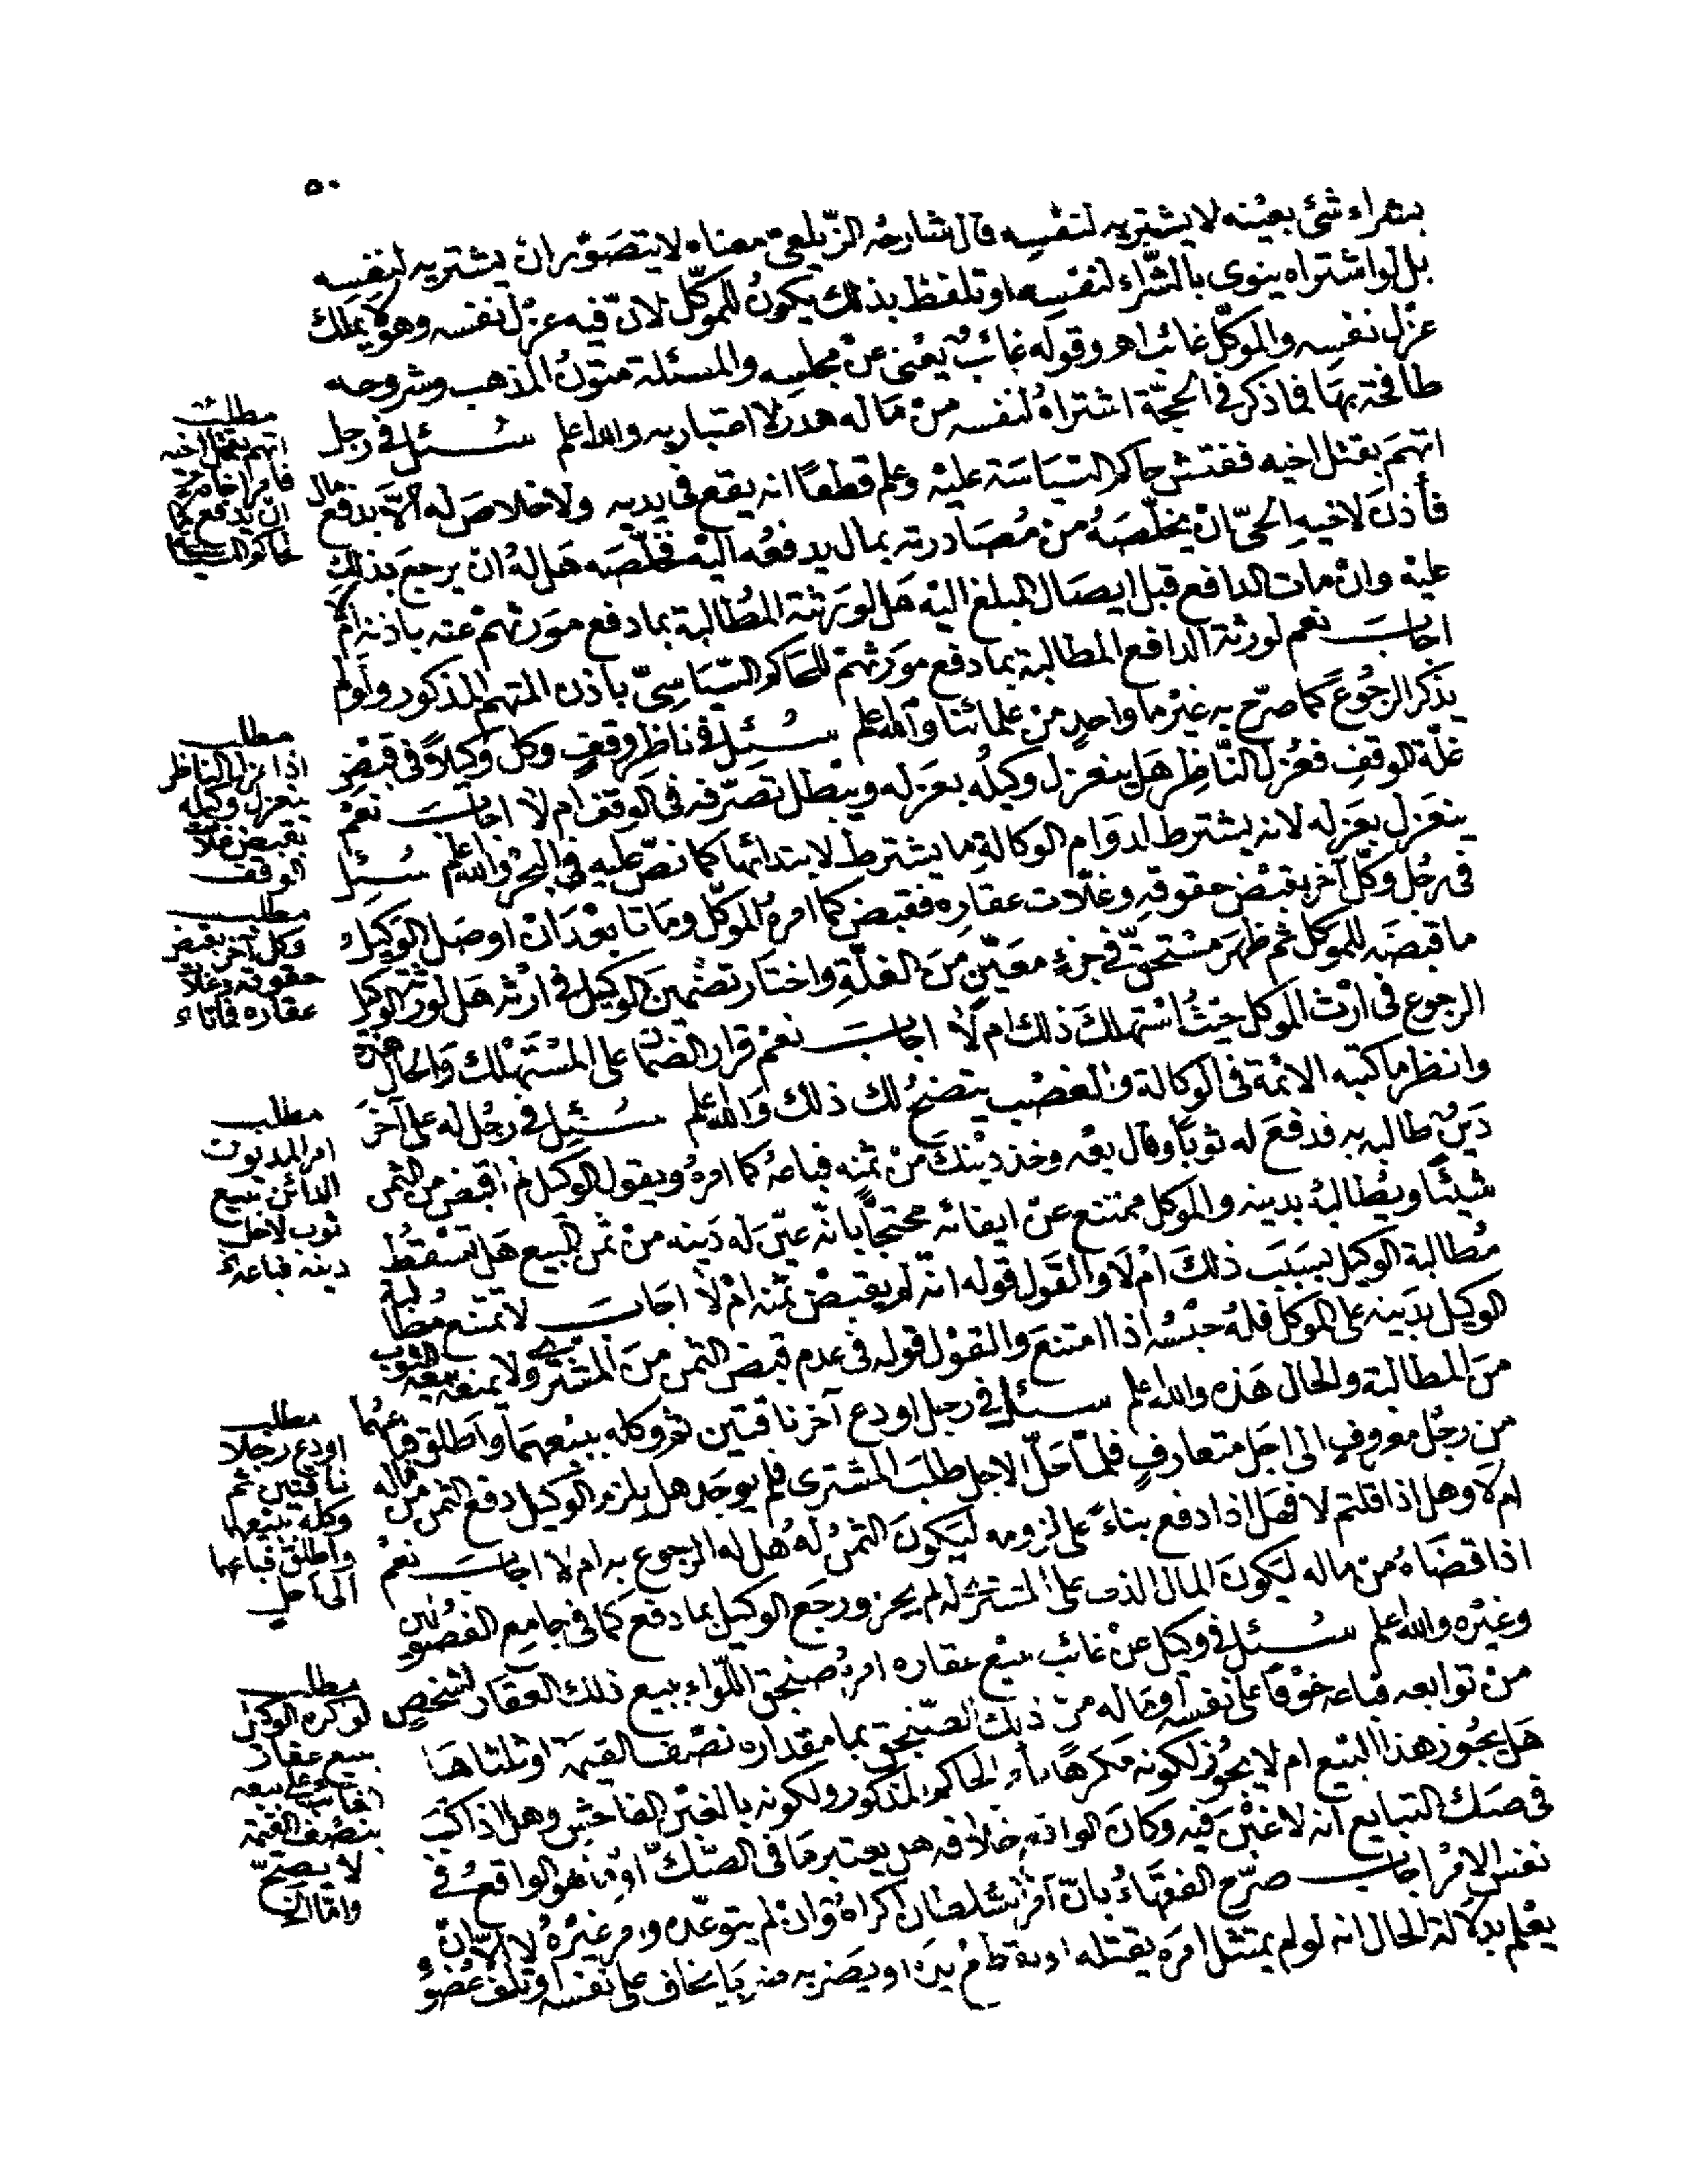 ٥٠
بشراء شئ بعينه لا يشتريه لنفسه قال شارحه الزيلعي معناه لا يتصور ان يشتريه لنفسه
بل لو اشتراه ينوى بالشراء لنفسه او تلفظ بذلك يكون للموكل لان فيه عزل نفسه وهو لا يملك
عزل نفسه والموكل غائب اهـ وقوله غائب يعنى عن مجلسه والمسئلة متون المذهب وشروحه
طافحة بها فما ذكر في الحجة اشتراه لنفسه من ماله هدر لا اعتبار به والله اعلم سئل في رجل
اتهم بقتل اخيه ففتش حاكم السياسة عليه وعلم قطعا انه يقع فى يديه ولا خلاص له الا بدفع مال
فأذن لاخيه الحى ان يخلصه من مصادرته بمال يدفعه اليه فخلصه هل له ان يرجع بذلك
عليه وان مات الدافع قبل ايصال المبلغ اليه هل لورثته المطالبة بما دفع مورثهم عنه باذنه ام لا
اجاب نعم لورثة الدافع المطالبة بما دفع مورثهم للحاكم السياسى باذن المتهم المذكور ولو لم
يذكر الرجوع كما صرح به غير ما واحد من علمائنا والله اعلم سئل في ناظر وقف وكل وكيلا فى قبض
غلة الوقف فعزل الناظر هل ينعزل وكيله بعزله ويبطل تصرفه فى الوقف ام لا اجاب نعم
ينعزل بعزله لانه يشترط لدوام الوكالة ما يشترط لابتدائها كما نص عليه فى البحر والله اعلم سئل
فى رجل وكل آخر بقبض حقوقه وغلات عقاره فقبض كما امره الموكل وماتا بعد ان اوصل الوكيل
ما قبضه للموكل ثم ظهر مستحق في جزء معين من الغلة واختار تضمين الوكيل فى ارثه هل لورثة الوكيل
الرجوع فى ارث الموكل حيث استهلك ذلك ام لا اجاب نعم قرار الضمان على المستهلك والحال هذه
وانظر ما كتبه الائمة فى الوكالة والغصب يتضح لك ذلك والله اعلم سئل في رجل له على آخر
دين طالبه به فدفع له ثوبا وقال بعه وخذ دينك من ثمنه فباعه كما امره ويقول الوكيل لم اقبض من الثمن
شيئا ويطالبه بدينه والموكل ممتنع عن ايفائه محتجا بانه عين له دينه من ثمن المبيع هل تسقط
مطالبة الوكيل بسبب ذلك ام لا والقول قوله انه لم يقبض ثمنه ام لا اجاب لا تمتنع مطالبة
الوكيل بدينه على الموكل فله حبسه اذا امتنع والقول قوله فى عدم قبض الثمن من المشترى ولا يمنعه بيعه الثوب
من المطالبة والحال هذه والله اعلم سئل في رجل اودع آخر ناقتين ثم وكله ببيعهما واطلق فباعهما
من رجل معروف الى اجل متعارف فلما حل الاجل طلب المشترى فلم يوجد هل يلزم الوكيل دفع الثمن من ماله
ام لا وهل اذا قلتم لا فهل اذا دفع بناء على لزومه ليكون الثمن له هل له الرجوع به ام لا اجاب نعم
اذا قضاه من ماله ليكون المال الذى على المشترى له لم يجز ورجع الوكيل بما دفع كما فى جامع الفصولين
وغيره والله اعلم سئل في وكيل عن غائب ببيع عقاره امره صنجق اللواء ببيع ذلك العقار لشخص
من توابعه فباعه خوفا على نفسه وماله من ذلك الصنجق بما مقداره نصف القيمة او ثلثاها
هل يجوز هذا البيع ام لا يجوز لكونه مكرها بأمر الحاكم المذكور ولكونه بالغبن الفاحش وهل اذا كتب
فى صك التبايع انه لا غبن فيه وكان الواقع خلافه هل يعتبر ما فى الصك او ما هو الواقع في
نفس الامر اجاب صرح الفقهاء بان امر السلطان اكراه وان لم يتوعده وامر غيره لا الا ان
يعلم بدلالة الحال انه لو لم يمتثل امره يقتله او يقطع يده او يضربه ضربا يخاف على نفسه او تلف عضو
مطلب
اتهم بقتل اخيه
فامر اخاه
ان يدفع مالا
لحاكم السياسة
مطلب
اذا عزل الناظر
ينعزل وكيله
بقبض غلة
الوقف
مطلب
وكل آخر بقبض
حقوقه وغلات
عقاره فماتا
مطلب
امر المديون
الدائن ببيع
ثوب لاجل
دينه فباعه
مطلب
اودع رجلا
ناقتين ثم
وكله ببيعهما
واطلق فباعهما
الى اجل
مطلب
لو كره الوكيل
ببيع عقار
الغائب على بيعه
بنصف القيمة
لا يصح